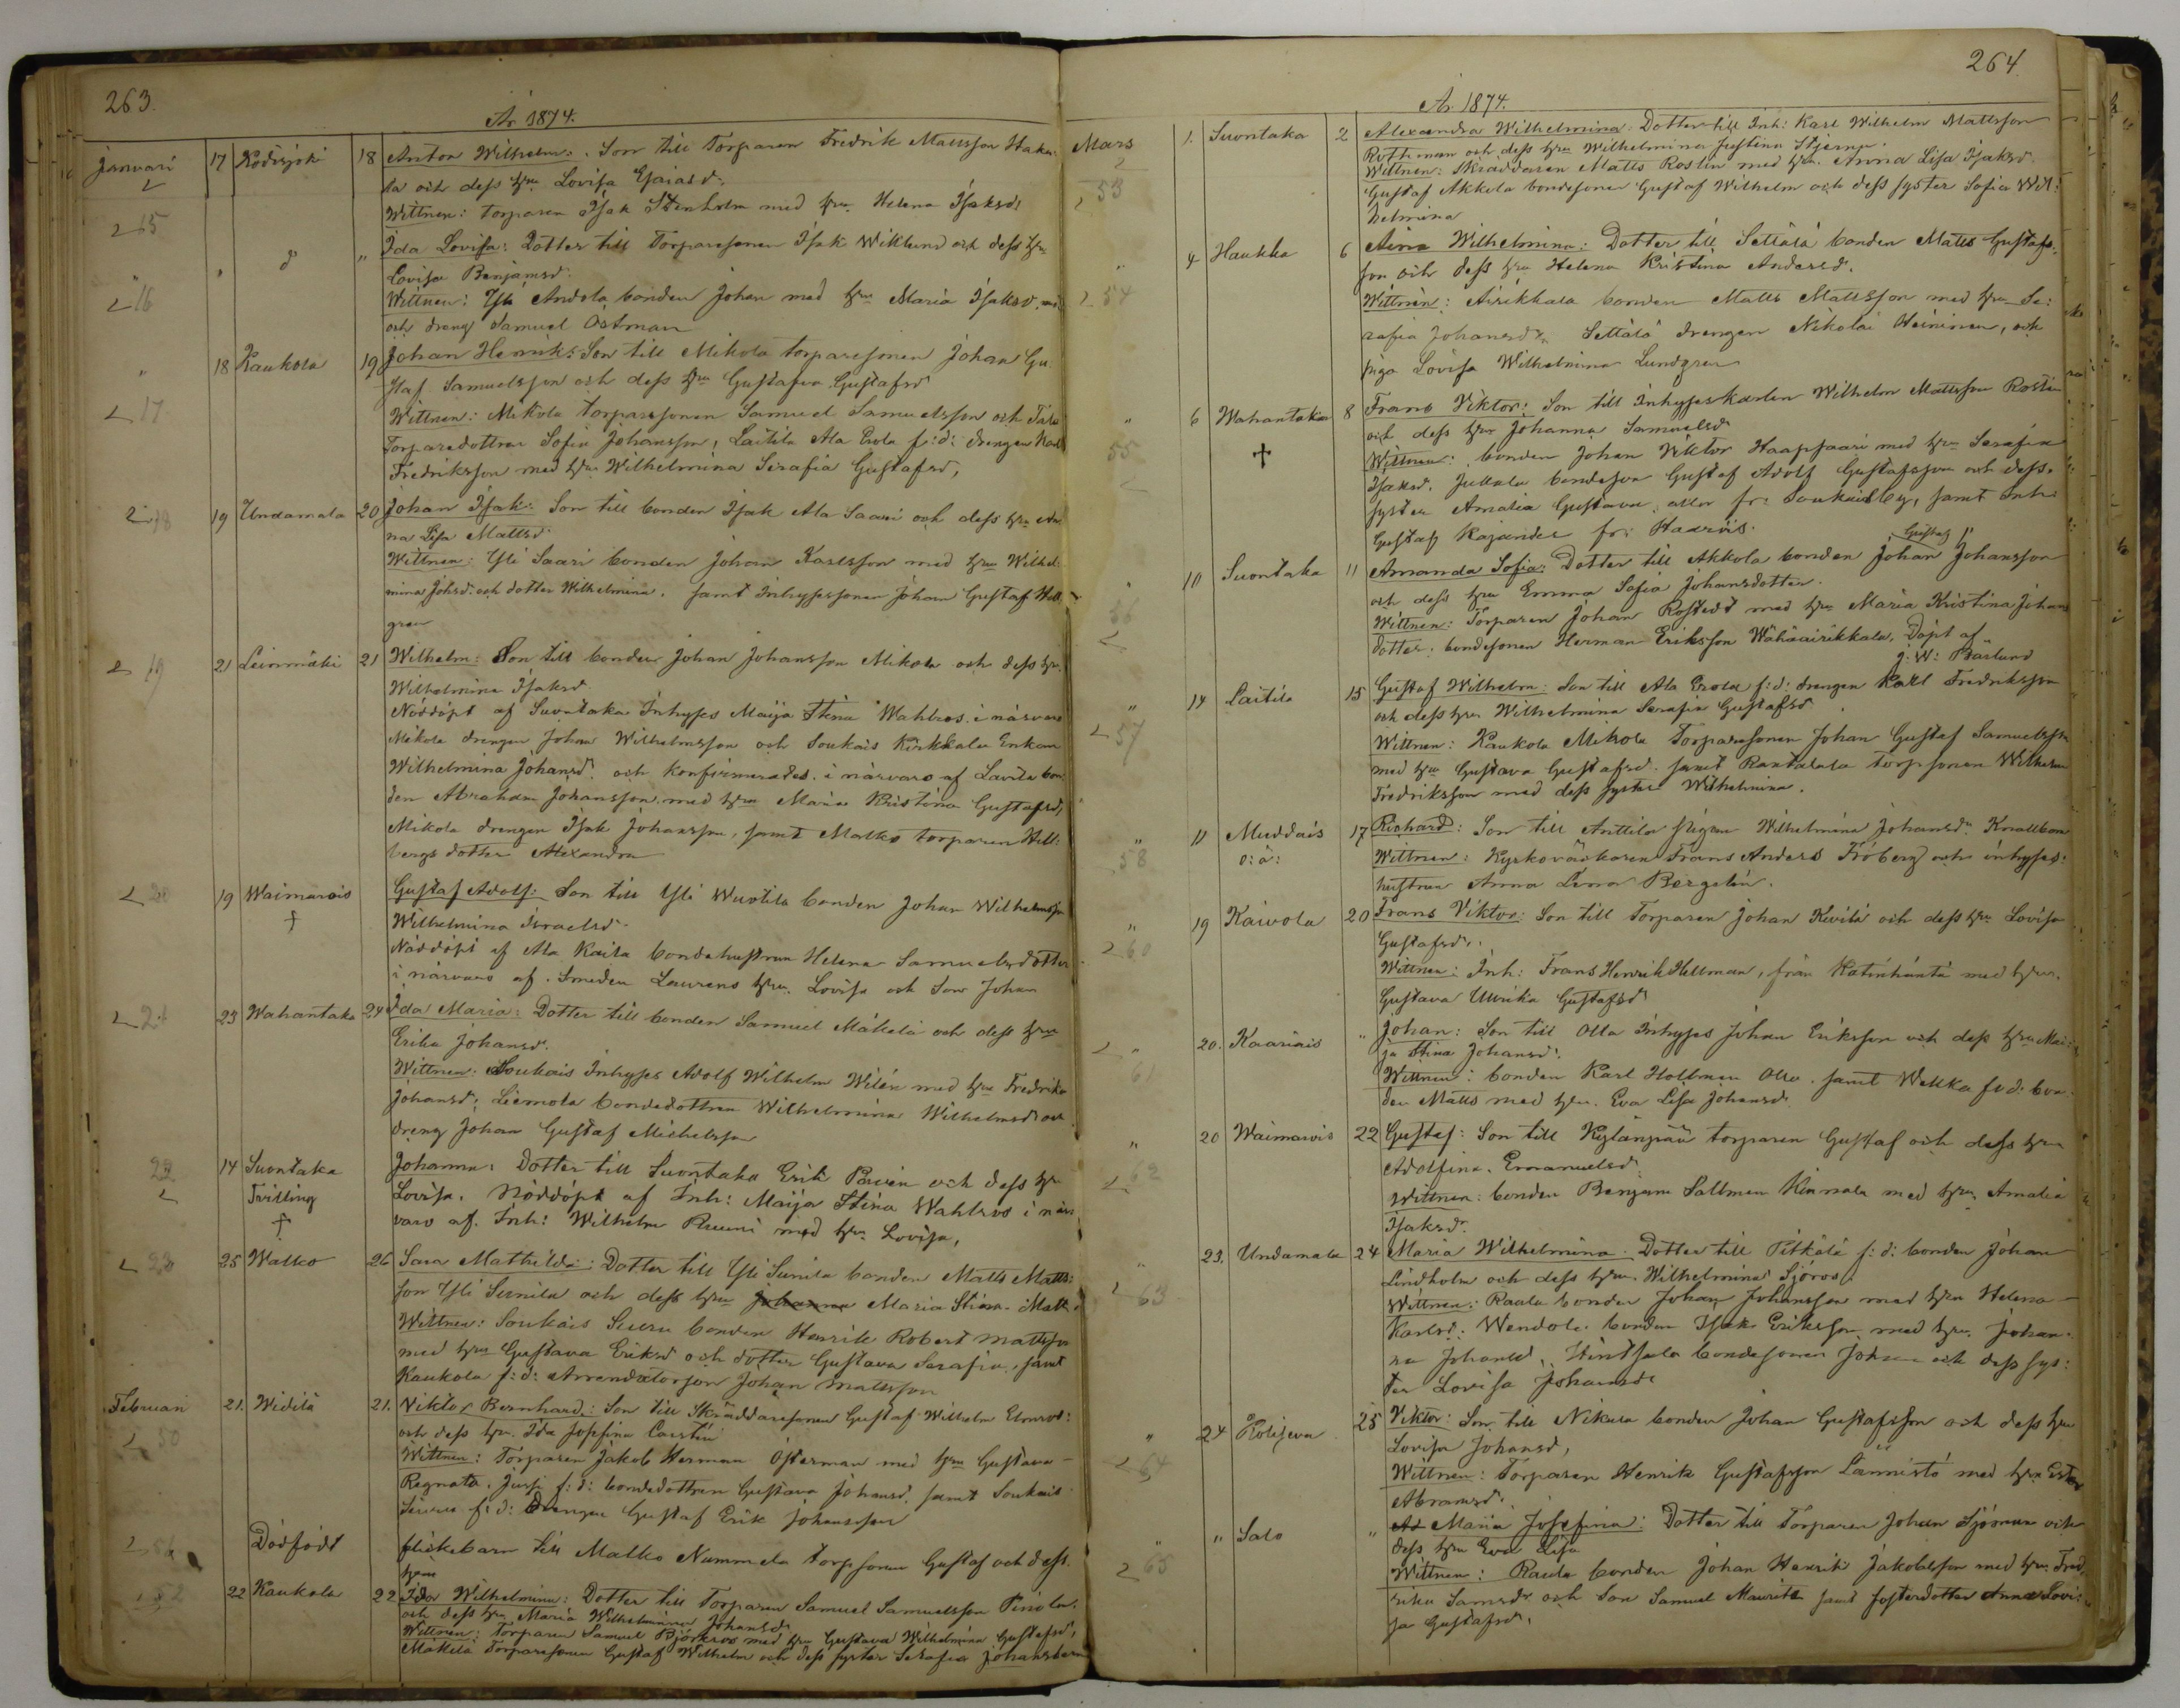 263.
År 1874.
Januari 17 Kodisjoki 18 Anton Wilhelm: Son till Torparen Fredrik Mattsson Haka-
la och dess hru Lovisa Esaiasd:
Wittnen: torparen Isak Stenholm med hru Helena Isaksd:
15
" " d " Ida Lovisa: Dotter till Torparesonen Isak Wiklund och dess hru
Lovisa Benjamsd:
16 Wittnen: Yli Andola bonden Johan med hru Maria Isaksd.
och dreng Samuel Östman
" 18 Kaukola 19 Johan Henrik: Son till Mikola torparesonen Johan Gu-
staf Samuelsson och dess hru Gustafva Gustafsd
17 Wittnen: Mikola torparesonen Samuel Samuelsson och
Torparedottren Sofia Johansson, Laitila Ala Erola f:d: drengen Karl
Fredriksson med hru Wilhelmina Serafia Gustafsd,
18 19 Undamala 20 Johan Isak: Son till bonden Isak Ala Saari och dess hru An-
na Lisa Mattsd
Wittnen: Yli Saari bonden Johan Karlsson med hru Wilhel-
mina Johsd: och dotter Wilhelmina. samt Inhysessonen Johan Gustaf Hell-
gren
19 21 Leinmäki 21 Wilhelm: Son till bonden Johan Johansson Mikola och dess hr.
Wilhelmina Isaksd.
Nöddöpt af Suontaka Inhyses Maija Stina Wahlros. i närvaro
Mikola drengen Johan Wilhelmsson och Soukais Kirkkala Enkan
Wilhelmina Johansd. och konfirmerades. i närvaro af Lavila bon-
den Abraham Johansson. med hru Maria Kristina Gustafsd,
Mikola drengen Isak Johansson, samt Malko torparen Hell-
bergs dotter Alexandra
20 19 Waimarois † Gustaf Adolf: Son till Yli Wuotila bonden Johan Wilhelmsson
Wilhelmina Israelsd.
Nöddöpt af Ala Kaita bondehustrun Helena Samuelsdotter
i närvaro af. Smeden Laurens hru. Lovisa och Son Johan
21 23 Wahantaka 24 Ida Maria: Dotter till bonden Samuel Mäkelä och dess hru
Erika Johansd.
Wittnen: Soukais Inhyses Adolf Wilhelm Wilén med hru Fredrika
Johansd; Liemola bondedottren Wilhelmina Wilhelmsd: och
dreng Johan Gustaf Michelsson
22 14 Suontaka Johanna: Dotter till Suontaka Erik Päiviö och dess hr
Tvilling Lovisa. Nöddöpt af Inh: Maija Stina Wahlros i när-
† varo af. Inh: Wilhelm Ruuni med hru Lovisa,
23 25 Malko 26 Sara Mathilda: Dotter till Yli Sunila bonden Matts Matts-
son Yli Sunila och dess hru Johanna Maria Stina. Matts
Wittnen: Soukais Seuru bonden Henrik Robert Mattsson
med hru Gustava Eriksd och dotter Gustava Serafia, samt
Kaukola f:d: Arrendatorson Johan Mattsson
Februari 21. Widilä 21. Viktor Bernhard: Son till Skräddaresonen Gustaf Wilhelm Elmros:
50 och dess hr. Ida Josefina Carstén
Wittnen: Torparen Jakob Herman Österman med hru Gustava
Regnata. Jussi f:d: bondedottren Gustava Johansd. samt Soukais
Seuru f:d: Drengen Gustaf Erik Johansson
51 Dödfödt flickebarn till Malko Nummela torpsonen Gustaf och dess
hru
52 22 Kaukola 22 Ida Wilhelmina: Dotter till Torparen Samuel Samuelsson
och dess hru Maria Wilhelmina Johansd:
Wittnen: torparen Samuel Björkroos med hru Gustava Wilhelmina Gustafsd,
Mäkelä Torparesonen Gustaf Wilhelm och dess syster Serafia
264.
År 1874.
Mars 1. Suontaka 2 Alexandra Wilhelmina: Dotter till Inh: Karl Wilhelm Mattsson
Rothman och dess hru Wilhelmina Justina Stjerna.
53 Wittnen: Skräddaren Matts Roslin med hru. Anna Lisa Isaksd.
Gustaf Akkola bondesonen Gustaf Wilhelm och dess syster Sofia Wil-
helmina
" 4 Haukka 6 Aina Wilhelmina: Dotter till Settälä bonden Matts Gustafs-
son och dess hru Helena Kristina Andersd.
54 Wittnen: Airikkala bonden Matts Mattsson med hru Se-
rafia Johansd. Settälä drengen Nikolai Heininen, och
piga Lovisa Wilhelmina Lundgren
" 6 Wahantaka 8 Frans Viktor: Son till Inhyseskarlen Wilhelm Mattsson Roslin
† och dess hru Johanna Samuelsd
55 Wittnen: bonden Johan Viktor Haapsaari med hru Serafia
Isaksd. Jullala bondeson Gustaf Adolf Gustafsson och dess
syster Amalia Gustava. allor fr: Soukais by, samt Inh:
Gustaf Kajander fr: Haaröis.
Gustaf
" 10 Suontaka 11 Amanda Sofia: Dotter till Akkola bonden Johan Johansson
och dess hru Emma Sofia Johansdotter.
56 Wittnen: Torparen Johan Rostedt med hru Maria Kristina Johans
dotter: bondesonen Herman Eriksson Wähäairikkala. Döpt af
J: W: Barlund
" 14 Laitila 15 Gustaf Wilhelm: Son till Ala Erola f:d: drengen Karl Fredriksson
och dess hru Wilhelmina Serafia Gustafsd.
57 Wittnen: Kaukola Mikola Torparesonen Johan Gustaf Samuelsson
med hru Gustava Gustafsd. samt Rantalala torpsonen Wilhelm
Fredriksson med dess syster Wilhelmina.
" 11 Muddais 17 Richard: Son till Anttila Pigan Wilhelmina Johansd:
58 o:ä: Wittnen: Kyrkoväktaren Frans Anders Fröberg och inhyses-
hustrun Anna Lena Bergelin.
" 19 Kaivola 20 Frans Viktor: Son till Torparen Johan Kivilä och dess hru Lovisa
60 Gustafsd.
Wittnen: Inh: Frans Henrik Hellman, från Katinhäntä med hru.
Gustava Ulrika Gustafsd
" 20. Kaariais " Johan: Son till Olla Inhyses Johan Eriksson och dess hru Mai-
61 ja Stina Johansd:
Wittnen: bonden Karl Hollmen Olla. samt Wekka f:d: bon-
den Matts med hru. Eva Lisa Johansd.
" 20 Waimarois 22 Gustaf: Son till Kylänpää torparen Gustaf och dess hru
62 Adolfina. Emanuelsd
Wittnen: bonden Benjam Sallmen Kinnala med hru Amalia
Isaksd.
" 23. Undamala 24 Maria Wilhelmina: Dotter till Pitkälä f:d: bonden Johan
Lindholm och dess hru. Wilhelmina Sjöros.
63 Wittnen: Raula bonden Johan Johansson med hru Helena
Karlsd: Wendola bonden Isak Eriksson med hru Johan-
na Johansd. Hintsala bondesonen Johan och dess sys-
ter Lovisa Johansd:
" 24 Kolijeva 25 Viktor: Son till Nikula bonden Johan Gustafsson och dess hru
Lovisa Johansd,
64 Wittnen: Torparen Henrik Gustafsson Lännistö med hru Ester
Abramsd.
" " Salo " Maria Josefina: Dotter till Torparen Johan Sjöman och
dess hru Eva Lisa
65 Wittnen: Raula bonden Johan Henrik Jakobsson med hru Fred-
rika Samsd. och Son Samuel Maurits samt fosterdotter Anna Lovi-
sa Gustafsd.